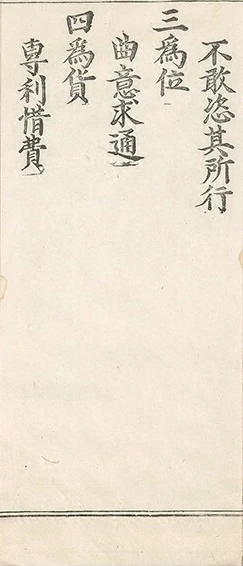 不敢恣其所行
三爲位
曲意求通
四爲貨
專利惜費